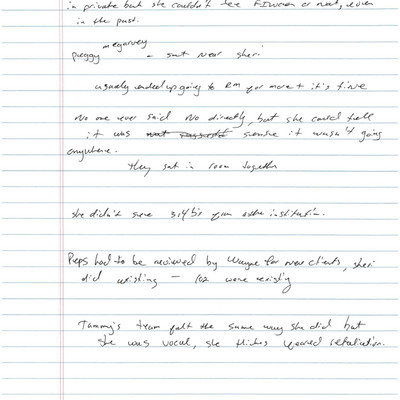 in private but she couldn't see FinCEN or not, even
in the past.
megarvey
Peggy - sat near sheri
usually ended up going to RM for more + it's time
No one ever said No directly, but she could tell
it was sense it wasn't going
anywhere.
they sat in room together
she didn't see 314b's from other institution.
Preps had to be reviewed by Wayne for new clients, sheri
did existing - 102 were existing
Tammy's team felt the same way she did but
she was vocal, she thinks feared retaliation.